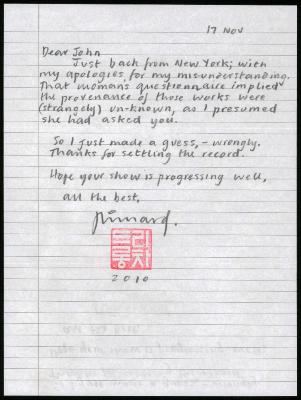 17 Nov
Dear John
Just back from New York; with
my apologies for my misunderstanding.
That womans questionnaire implied
the provenance of those works were
(strangely) un-known, as I presumed
she had asked you.
So I just made a guess, – wrongly.
Thanks for settling the record.
Hope your show is progressing well,
all the best,
2010